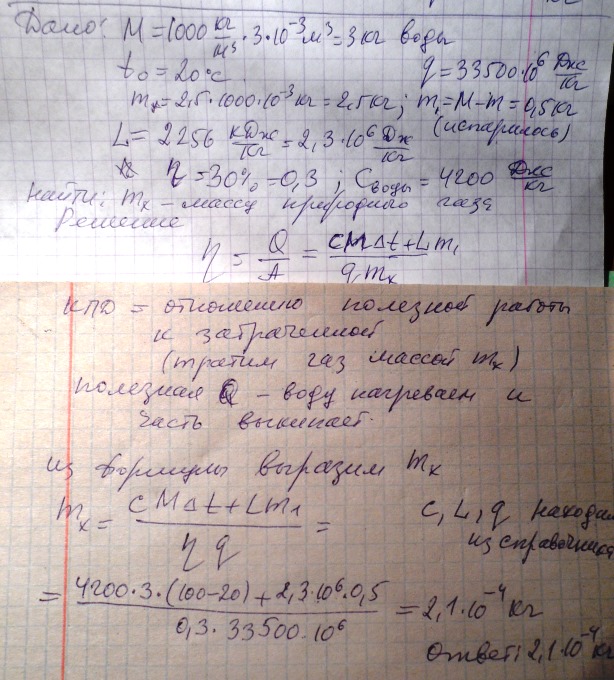 Дано: M = 1000 кг/м³ · 3 · 10⁻³ м³ = 3 кг воды
t₀ = 20°C q = 33500 · 10⁶ Дж/кг
mₓ = 2,5 · 1000 · 10⁻³ кг = 2,5 кг; m₁ = M - m = 0,5 кг
(испарилось)
L = 2256 кДж/кг = 2,3 · 10⁶ Дж/кг
η = 30% = 0,3; Cводы = 4200 Дж/кг
Найти: mₓ - массу природного газа
Решение
η = Q/A = (CMΔt + Lm₁)/(q mₓ)
КПД = отношению полезной работы
к затраченной
(тратим газ массой mₓ)
полезная Q - воду нагреваем и
часть выкипает.
из формулы выразим mₓ
mₓ = (CMΔt + Lm₁)/(ηq) = C, L, q находим
из справочника
= (4200 · 3 · (100-20) + 2,3 · 10⁶ · 0,5)/(0,3 · 33500 · 10⁶) = 2,1 · 10⁻⁴ кг
Ответ: 2,1 · 10⁻⁴ кг